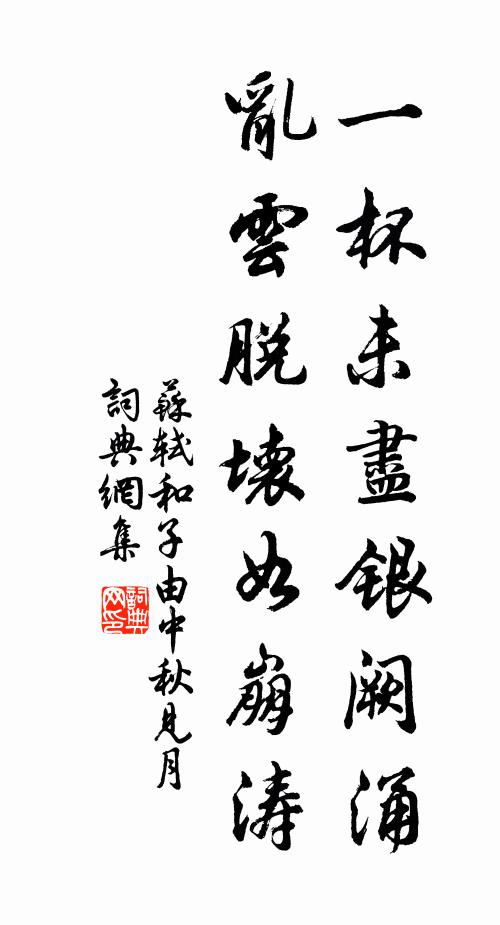 一杯未盡銀闕涌
亂雲脫壞如崩涛
蘇軾和子由中秋見月
詞典網集
詞典
网印